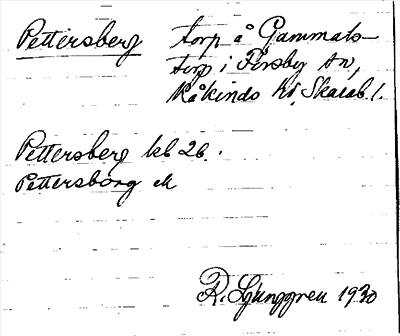 Pettersberg torp å Gammals-
torp i Finsby sn,
Kåkinds hd, Skarab. l.
Pettersberg kb 26.
Pettersborg ek
R. Ljunggren 1930